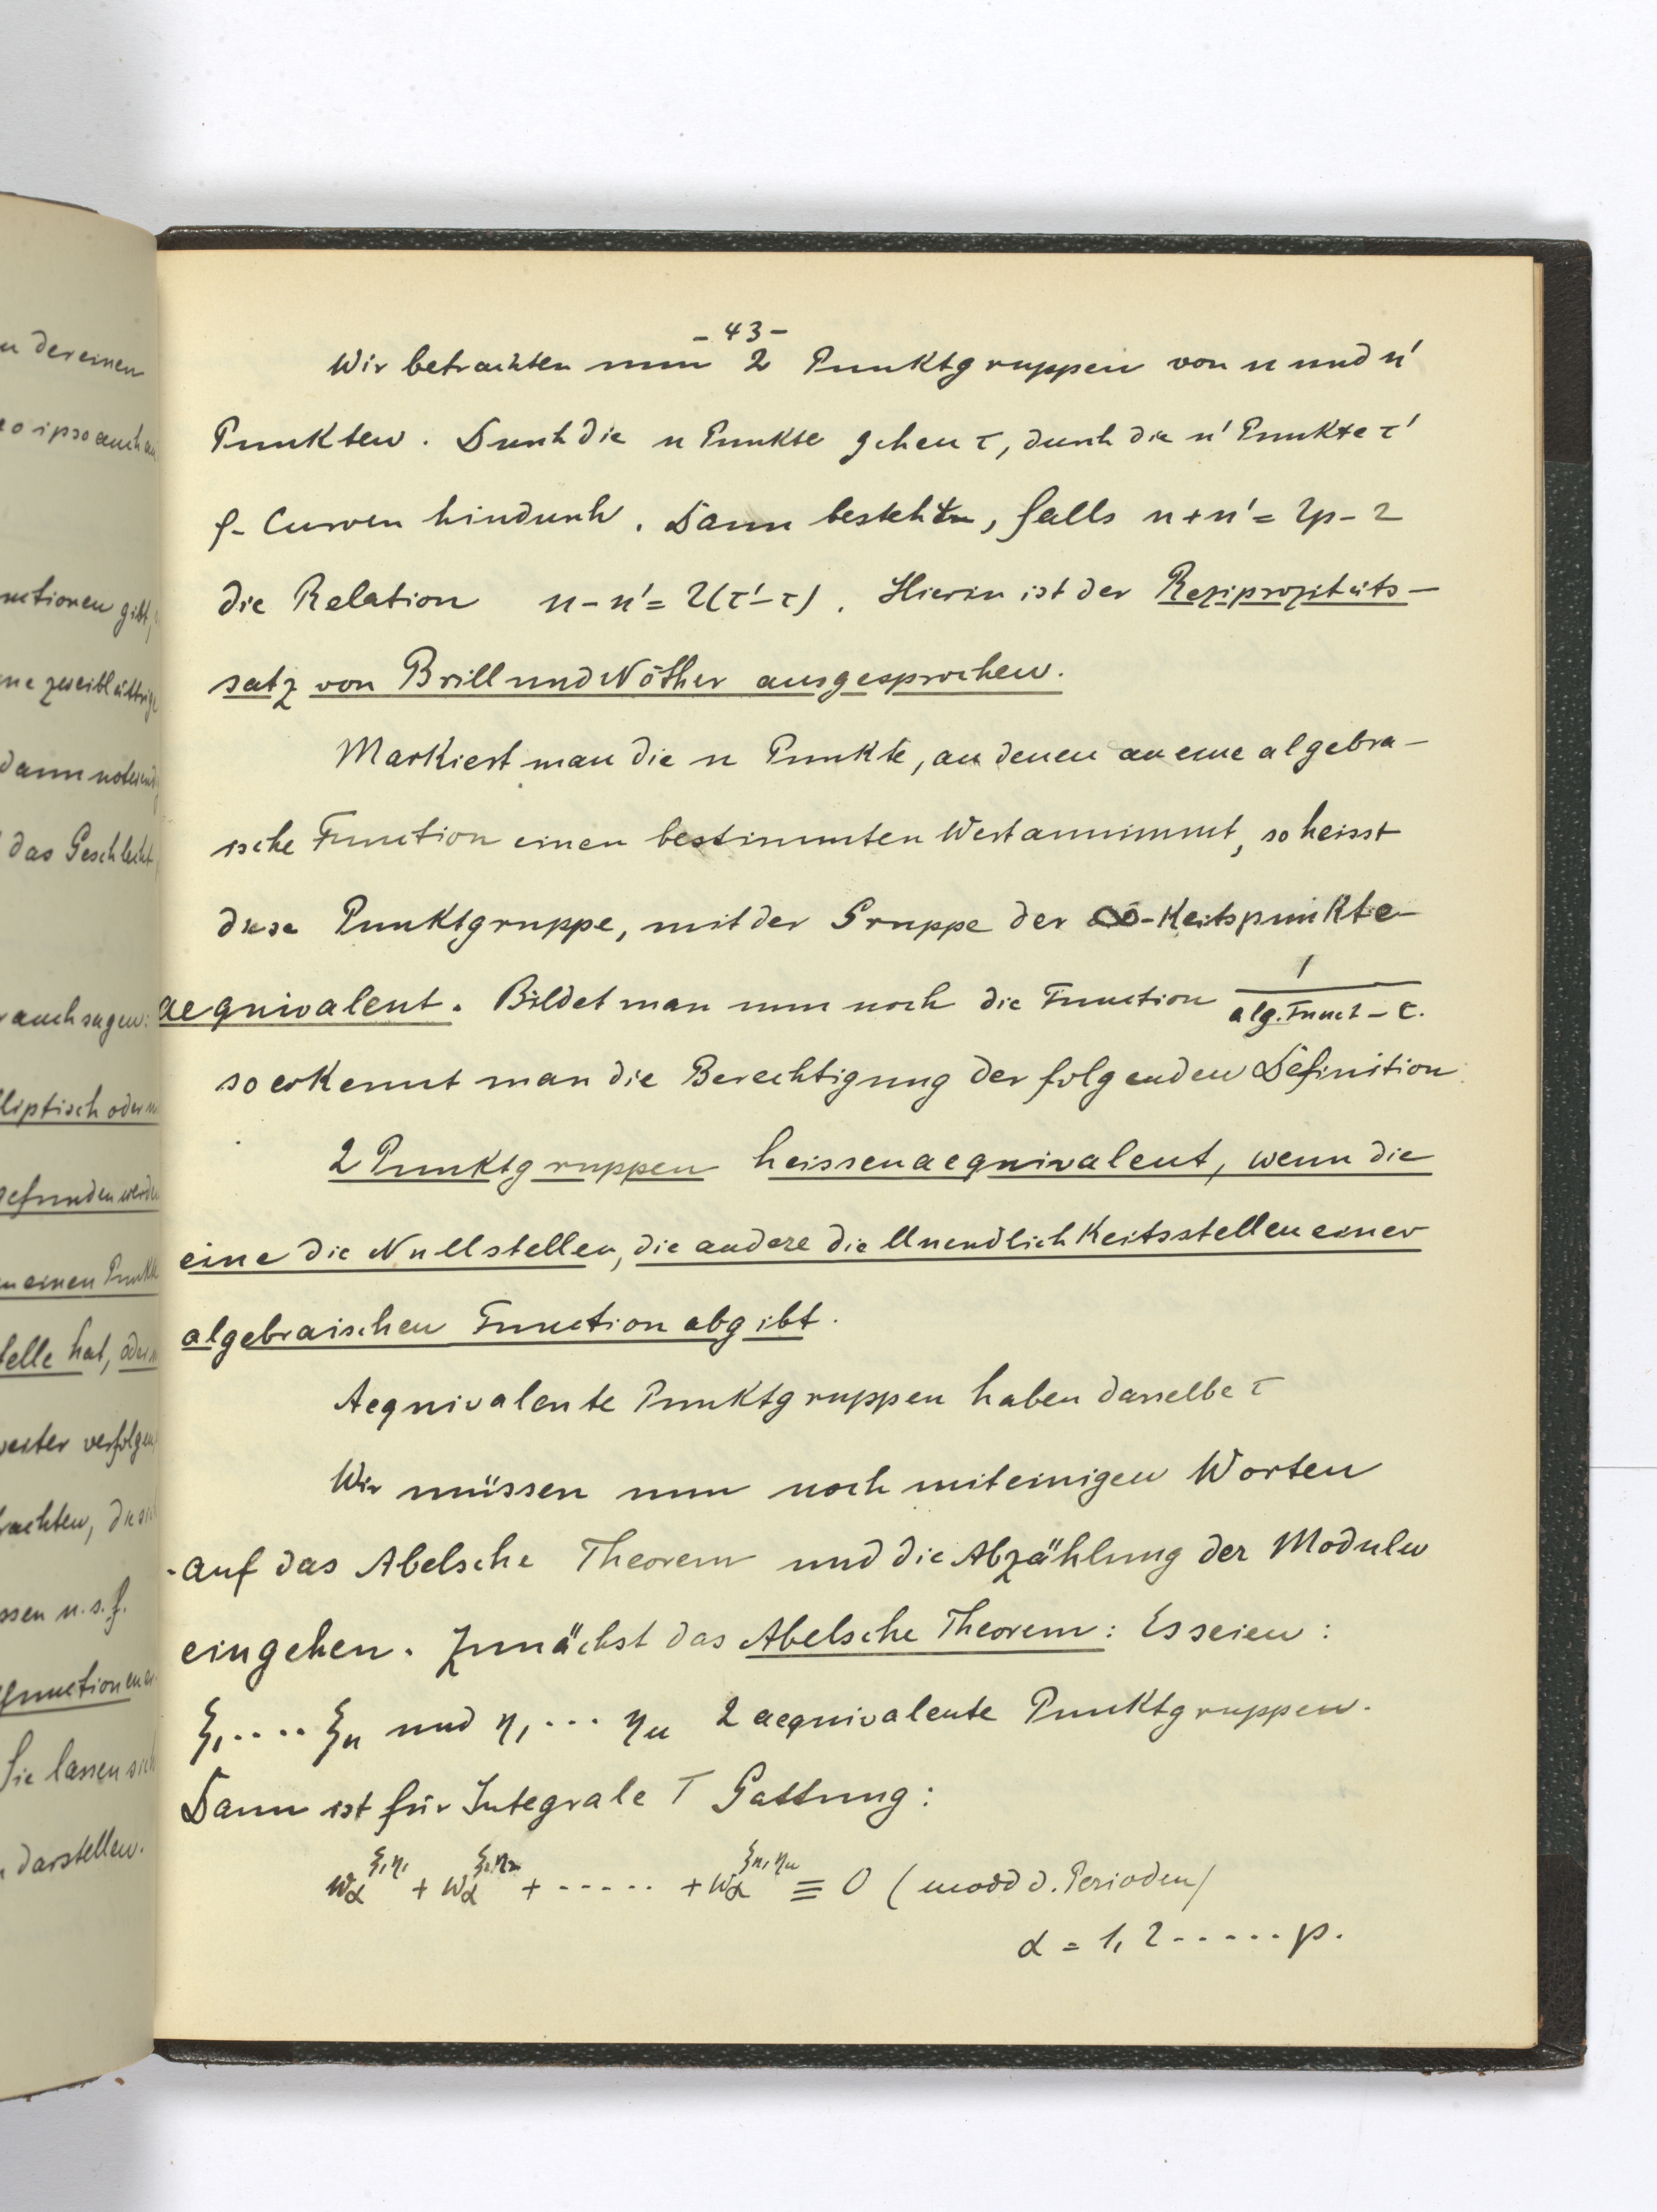 u dereinen
eo ipso auch
nctionen gibt,
ne zweiblättrige
dann notwend
das Geschlecht
auch sagen:
lliptisch oder
gefunden werde
einen Punkt
telle hat, oder
weiter verfolgen
rachten,
ssen u.s.f.
function
Sie lassen sich
darstellen.
- 43 -
Wir betrachten nun 2 Punktgruppen von n und n'
Punkten. Durch die n Punkte gehen τ, durch die n' Punkte τ'
φ- Curven hindurch. Dann besteht, falls n + n' = 2p - 2
die Relation n - n' = 2(τ' - τ). Hierin ist der Reziprozitäts-
satz von Brill und Nöther ausgesprochen.
Markiert man die n Punkte, an denen an eine algebra-
ische Function einen bestimmten Wert annimmt, so heisst
diese Punktgruppe, mit der Gruppe der ∞-keitspunkte
aequivalent. Bildet man nun noch die Function 1/(alg. Funct - c.
so erkennt man die Berechtigung der folgenden Definition.
2 Punktgruppen heissen aequivalent, wenn die
eine die Nullstellen, die andere die Unendlichkeitsstellen einer
algebraischen Function abgibt.
Aequivalente Punktgruppen haben dasselbe τ
Wir müssen nun noch mit einigen Worten
auf das Abelsche Theorem und die Abzählung der Moduln
eingehen. Zunächst das Abelsche Theorem: Es seien:
ξ₁.... ξₙ und η₁... ηₙ 2 aequivalente Punktgruppen.
Dann ist für Integrale I Gattung:
w_α^{ξ₁η₁} + w_α^{ξ₂η₂} + ...... + w_α^{ξₙ,ηₙ} ≡ 0 (modd d. Perioden)
α = 1, 2 ...... p.